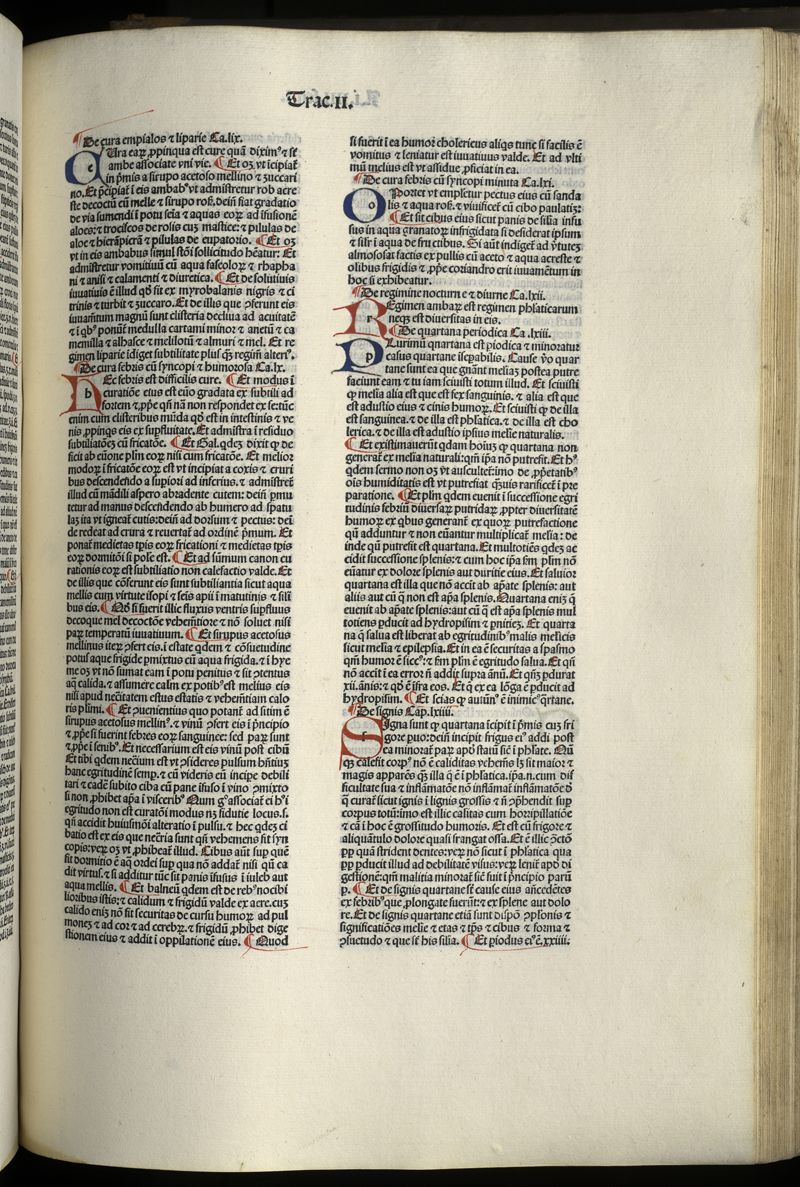 Trac. II.
¶ De cura empialos ⁊ liparie Ca. lix.
CUra eaꝝ ꝓpinqua est cure quā diximꝰ ⁊ sē
ambe associate vni vie. ¶ Et oꝫ vt īcipiat̄
in p̄mis a sirupo acetoso mellino ⁊ zuccari
no. Et p̄cipiat̄ ī eis ambabꝰ vt admīstretur rob acre
ste decoctū cū melle ⁊ sirupo roß. deiñ fiat gradatio
de via sumendi ī potu seīa ⁊ aquas eoꝝ ad īfusionē
aloes: ⁊ trociscos de rolis cuꝫ mastice: ⁊ pilulas de
aloe ⁊ hierāpicrā ⁊ pilulas de eupatorio. ¶ Et oꝫ
vt in eis ambabus simul stōi sollicitudo hēatur: Et
admīstretur vomitiuū cū aqua faseoloꝝ ⁊ rhapha
ni ⁊ anisi ⁊ calamenti ⁊ diuretica. ¶ Et de solutiuis
iuuatiuis ē illud qđ sit ex myrobalanis nigris ⁊ ci
trinis ⁊ turbit ⁊ zuccaro. Et de illis que ꝯferunt eis
iuuamētum magnū sunt clisteria decliua ad acuitatē
⁊ ī qbꝰ ponūt̄ medulla cartami minoꝛ ⁊ anetū ⁊ ca
memilla ⁊ albasce ⁊ melilotū ⁊ almuri ⁊ mel. Et re
gimen liparie īdiget subtilitate plus ꝗ̄ꝫ regim̄ alteriꝰ.
¶ De cura febris cū syncopi ⁊ humorosa Ca. lx.
hEc febris est difficilis cure. ¶ Et modus ī
curatiōe eius est eūo gradata ex subtili ad
fortem ⁊ ꝓp̄e qñ nā non respondet ex se: tūc
enim cum clisteribus mūda qđ est in intestinis ⁊ ve
nis ꝓpinqs eis ex supfluitate. Et admīstra ī residuo
subtiliatōeꝫ cū fricatōe. ¶ Et Gal. qdeꝫ dixit ꝙ de
ficit ab eūone plin eoꝝ nisi cum fricatōe. Et melior
modoꝝ ī fricatōe eoꝝ est vt incipiat a coxis ⁊ cruri
bus descendendo a supiori ad inferius. ⁊ admīstret̄
illud cū mādili aspero abradente cutem: deiñ pmu
tetur ad manus descendendo ab humero ad spatu
laꝫ ita vt igneat̄ cutis: deiñ ad dorsum ⁊ pectus: deī
de redeat ad crura ⁊ reuertat̄ ad ordinē p̄mum. Et
ponat̄ medietas tp̄is eoꝝ fricationi ⁊ medietas tp̄is
eoꝝ dormitōi si pole est. ¶ Et ad sūmum canon cu
rationis eoꝝ est subtiliatio non calefactio valde. Et
de illis que cōferunt eis sunt subtiliantia sicut aqua
mellis cum virtute isopi ⁊ seīs apii ī matutinis ⁊ sīlī
bus eis. ¶ Nō si fuerit illic fluxus ventris supfluus
decoque mel decoctōe vehemētiore ⁊ nō soluet nisi
paꝝ temperatū iuuatiuum. ¶ Et sirupus acetosus
mellinus iteꝝ ꝯfert eis. ī estate qdem ⁊ cōsuetudine
potus aque frigide pmixtus cū aqua frigida. ⁊ ī hye
me oꝫ vt nō sumat eam ī potu penitus ⁊ sit ꝯtentus
aq̄ calida. ⁊ assumere calm̄ ex potibꝰ est melius eis
nisi apud nec̄itatem estus estatis ⁊ vehemētiam calo
ris plimi. ¶ Et ꝯuenientius quo potant̄ ad sitim ē
sirupus acetosus mellinꝰ. ⁊ vinū ꝯfert eis ī pncipio
⁊ ꝓp̄e si fuerint febres eoꝝ sanguinee: sed paꝝ sunt
⁊ ꝓp̄e ī senibꝰ. Et necessarium est eis vinū post cibū
Et tibi qdem nec̄ium est vt ꝯsideres pulsum hñtiuꝫ
hanc egritudinē semp. ⁊ cū videris cū incipe debili
tari ⁊ cadē subito ciba cū pane īfuso ī vino ꝯmixto
si non ꝓhibet ap̄a ī visceribꝰ Num gͦ associat̄ ei hꝰ ī
egritudo non est curatōi modus nꝫ fidutie locus. s.
qñ accidit huiusmōi alteratio ī pulsu. ⁊ hec qdeꝫ ci
batio est ex eis que nec̄ria sunt qñ vehemens sit syn
copis: veꝝ oꝫ vt ꝓhibeat̄ illud. Cibus aūt sup quē
fit dormitio ē aq ordei sup qua nō addat̄ nisi qū ca
dit virtus. ⁊ si additur tūc sit panis īfusus ī iuleb aut
aqua mellis. ¶ Et balneū qdem est de rebꝰ nocibi
lioribus istis: ⁊ calidum ⁊ frigidū valde ex aere. cuꝫ
calido eniꝫ nō sit securitas de cursu humoꝝ ad pul
moneꝫ ⁊ ad cor ⁊ ad cerebꝝ. ⁊ frigidū ꝓhibet dige
stionem eius ⁊ addit ī oppilationē eius. ¶ Quod
si fuerit ī ea humoꝛ cholericus aliqs tunc si facilis ē
vomitus ⁊ leniatur est iuuatiuus valde. Et ad vlti
mū melius est vt assidue ꝓficiat in ea.
¶ De cura febris cū syncopi minuta Ca. lxi.
OPortet vt empletur pectus eius cū sanda
lis ⁊ aqua roß. ⁊ viuificet̄ cū cibo paulatiꝫ:
¶ Et sit cibus eius sicut panis de sīlīa infu
sus in aqua granatoꝝ infrigidata si desiderat ipsum
⁊ silr̄ ī aqua de fructibus. Si aūt indiget̄ ad v̄tuteꝫ
almososat factis ex pullis cū aceto ⁊ aqua acreste ⁊
olibus frigidis ⁊ ꝓp̄e coriandro erit iuuamētum in
hoc si exhibeatur.
¶ De regimine nocturne ⁊ diurne Ca. lxii.
REgimen ambaꝝ est regimen phlaticarum
neqꝫ est diuersitas in eis.
¶ De quartana periodica Ca. lxiii.
PLurimū quartana est piodica ⁊ minoratur
casus quartane īsepabilis. Cause v̄o quar
tane sunt ea que gnāt melīaꝫ postea putre
faciunt eam ⁊ tu iam sciuisti totum illud. Et sciuisti
ꝙ melīa alia est que est fex sanguinis. ⁊ alia est que
est adustio eius ⁊ cinis humoꝝ. Et sciuisti ꝙ de illa
est sanguinea. ⁊ de illa est phlatica. ⁊ de illa est cho
lerica. ⁊ de illa est adustio ipsius melīe naturalis.
¶ Et existimauerūt qdam hoīuꝫ ꝙ quartana non
generat̄ ex melīa naturali: qm̄ ip̄a nō putrefit. Et hꝰ
qdem sermo non oꝫ vt auscultet̄: imo de ꝓpetatibꝰ
oīs humiditatis est vt putrefiat ꝗ̄uis rarificet̄ ī pre
paratione. ¶ Et plm̄ qdem euenit ī successione egri
tudinis febriū diuersaꝝ putridaꝝ ꝓpter diuersitatē
humoꝝ ex qbus generant̄ ex quoꝝ putrefactione
qñ adduntur ⁊ non euātur multiplicat̄ melīa: de
inde qñ putrefit est quartana. Et multotiēs qdeꝫ ac
cidit successione splenis: ⁊ cum hoc īp̄a fm̄ plm̄ nō
euātur ex dolore splenis aut duritie eius. Et saluior
quartana est illa que nō accit ab ap̄ate splenis: aut
aliis aut cū q non est ap̄a splenis. Quartana eniꝫ q
euenit ab ap̄ate splenis: aut cū q̄ est ap̄a splenis mul
totiens pducit ad hydropisim ⁊ pnitieꝫ. Et quarta
na q̄ salua est liberat ab egritudinibꝰ malis melīcis
sicut melīa ⁊ epilepsia. Et in ea ē securitas a spasmo
qm̄ humor ē siccꝰ: ⁊ fm̄ plm̄ ē egritudo salua. Et qñ
nō accit ī ea error ñ addit supra ānū. Et qñꝫ pdurat
xii. ānis: ⁊ qđ ē īfra eos. Et q̄ ex ea lōga ē pducit ad
hydropisim. ¶ Et scias ꝙ autūnꝰ ē inimicꝰ q̄rtane.
¶ De signis Cap. lxiiii.
SIgna sunt ꝙ quartana īcipit ī pmis cuꝫ fri
gore puo: deiñ incipit frigus eiꝰ addi post
ea minorat̄ paꝝ apđ statū sic̄ ī phlate. Nū
qꝫ calefit corpꝰ nō ē caliditas vehem̄s lꝫ sit maior ⁊
magis apparēs ꝗ̄ꝫ illa q̄ ē ī phlatica. ip̄a. n. cum dif
ficultate sua ⁊ inflāmatōe nō inflāmat̄ inflāmatōe đ
q̄ curat̄ sicut ignis ī lignis grossis ⁊ ñ ꝯphendit sup
corpus totū: imo est illic calītas cum horripillatiōe
⁊ cā ī hoc ē grossitudo humoris. Et est cū frigore ⁊
aliquātulo dolore quasi frangat ossa. Et ē illic ꝯctō
ꝓp quā strident dentes: veꝝ nō sicut ī phlatica qua
ꝓp pducit illud ad debilitatē visus: veꝝ lenit̄ apđ di
gestionē: qñ malitia minorat̄ sic̄ fuit ī pncipio parū
p. ¶ Et de signis quartane sē cause eius añcedētes
ex febribꝰ que ꝓlongate fuerūt: ⁊ ex splene aut dolo
re. Et de signis quartane etiā sunt dispō ꝯplonis ⁊
significatiōes melīe ⁊ etas ⁊ tp̄s ⁊ cibus ⁊ forma ⁊
ꝯsuetudo ⁊ que sē his silia. ¶ Et piodus eiꝰ ē. xxiiii.